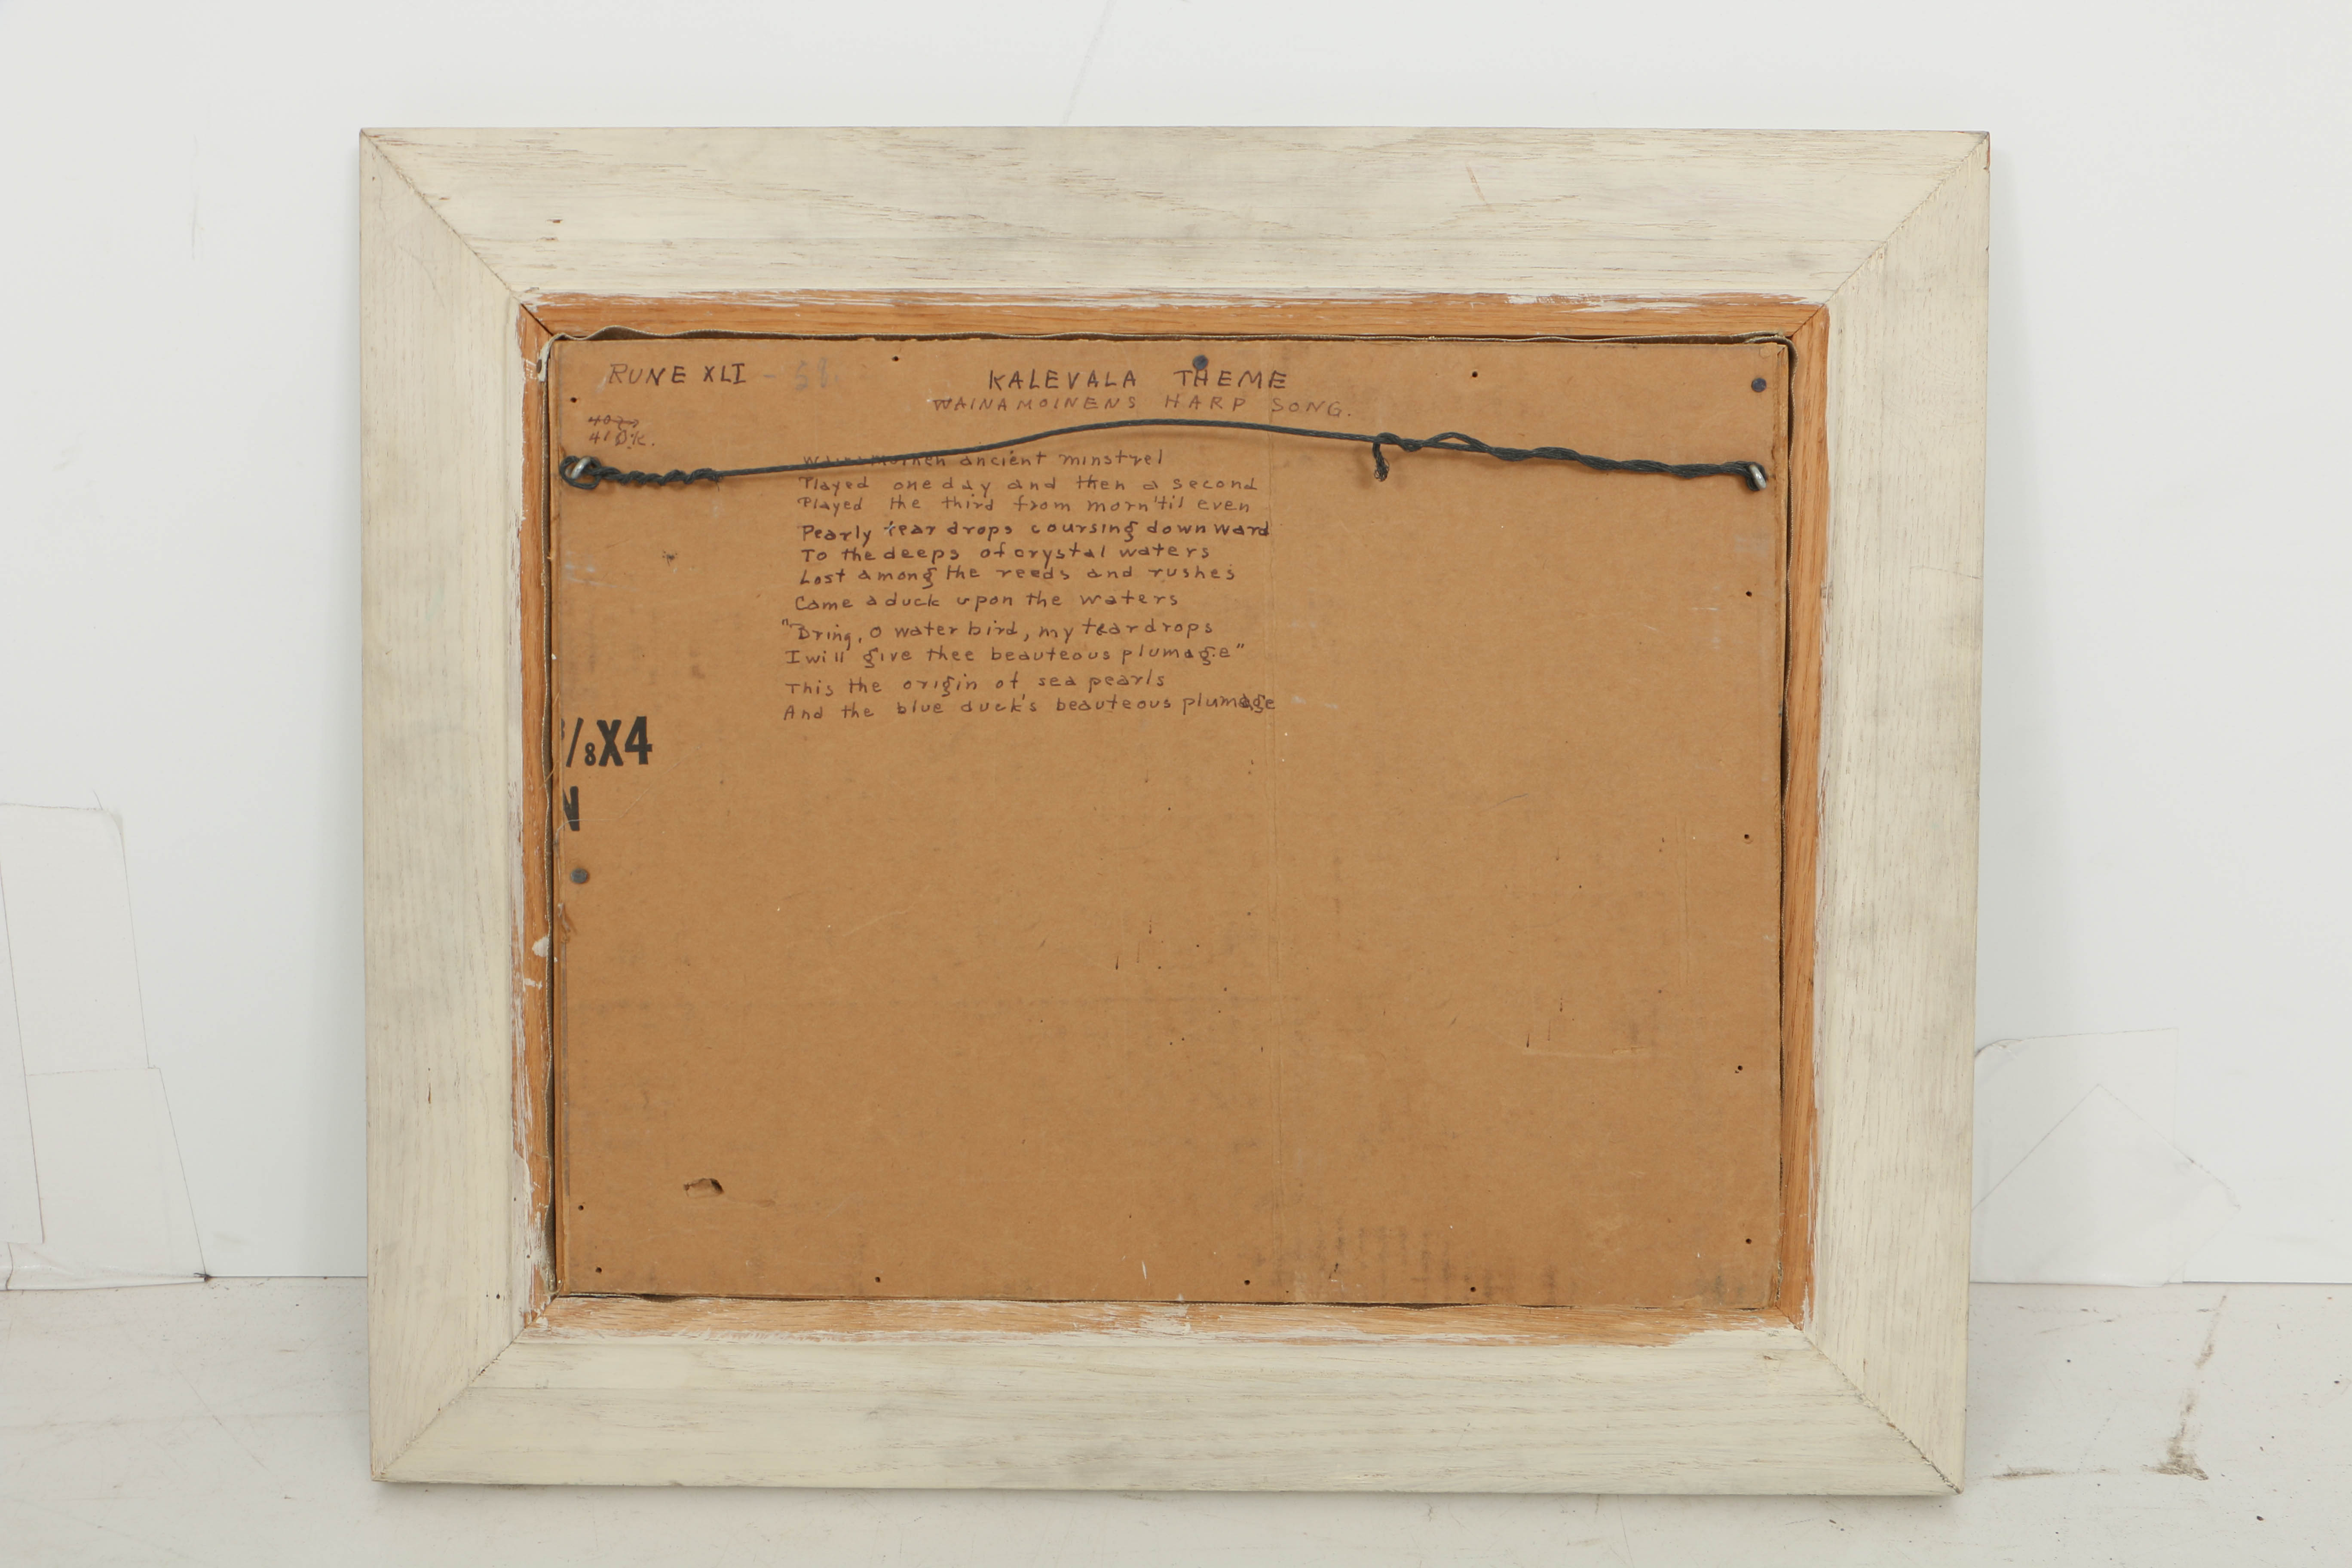 RUNE XLI -
KALEVALA THEME
WAINAMOINENS HARP SONG.
410k.
Wainamoinen ancient minstrel
Played one day and then a second
Played the third from morn 'til even
Pearly tear drops coursing downward
To the deeps of crystal waters
Lost among the reeds and rushes
Came a duck upon the waters
"Bring, O water bird, my teardrops
I will give thee beauteous plumage"
This the origin of sea pearls
And the blue duck's beauteous plumage
/8X4
N